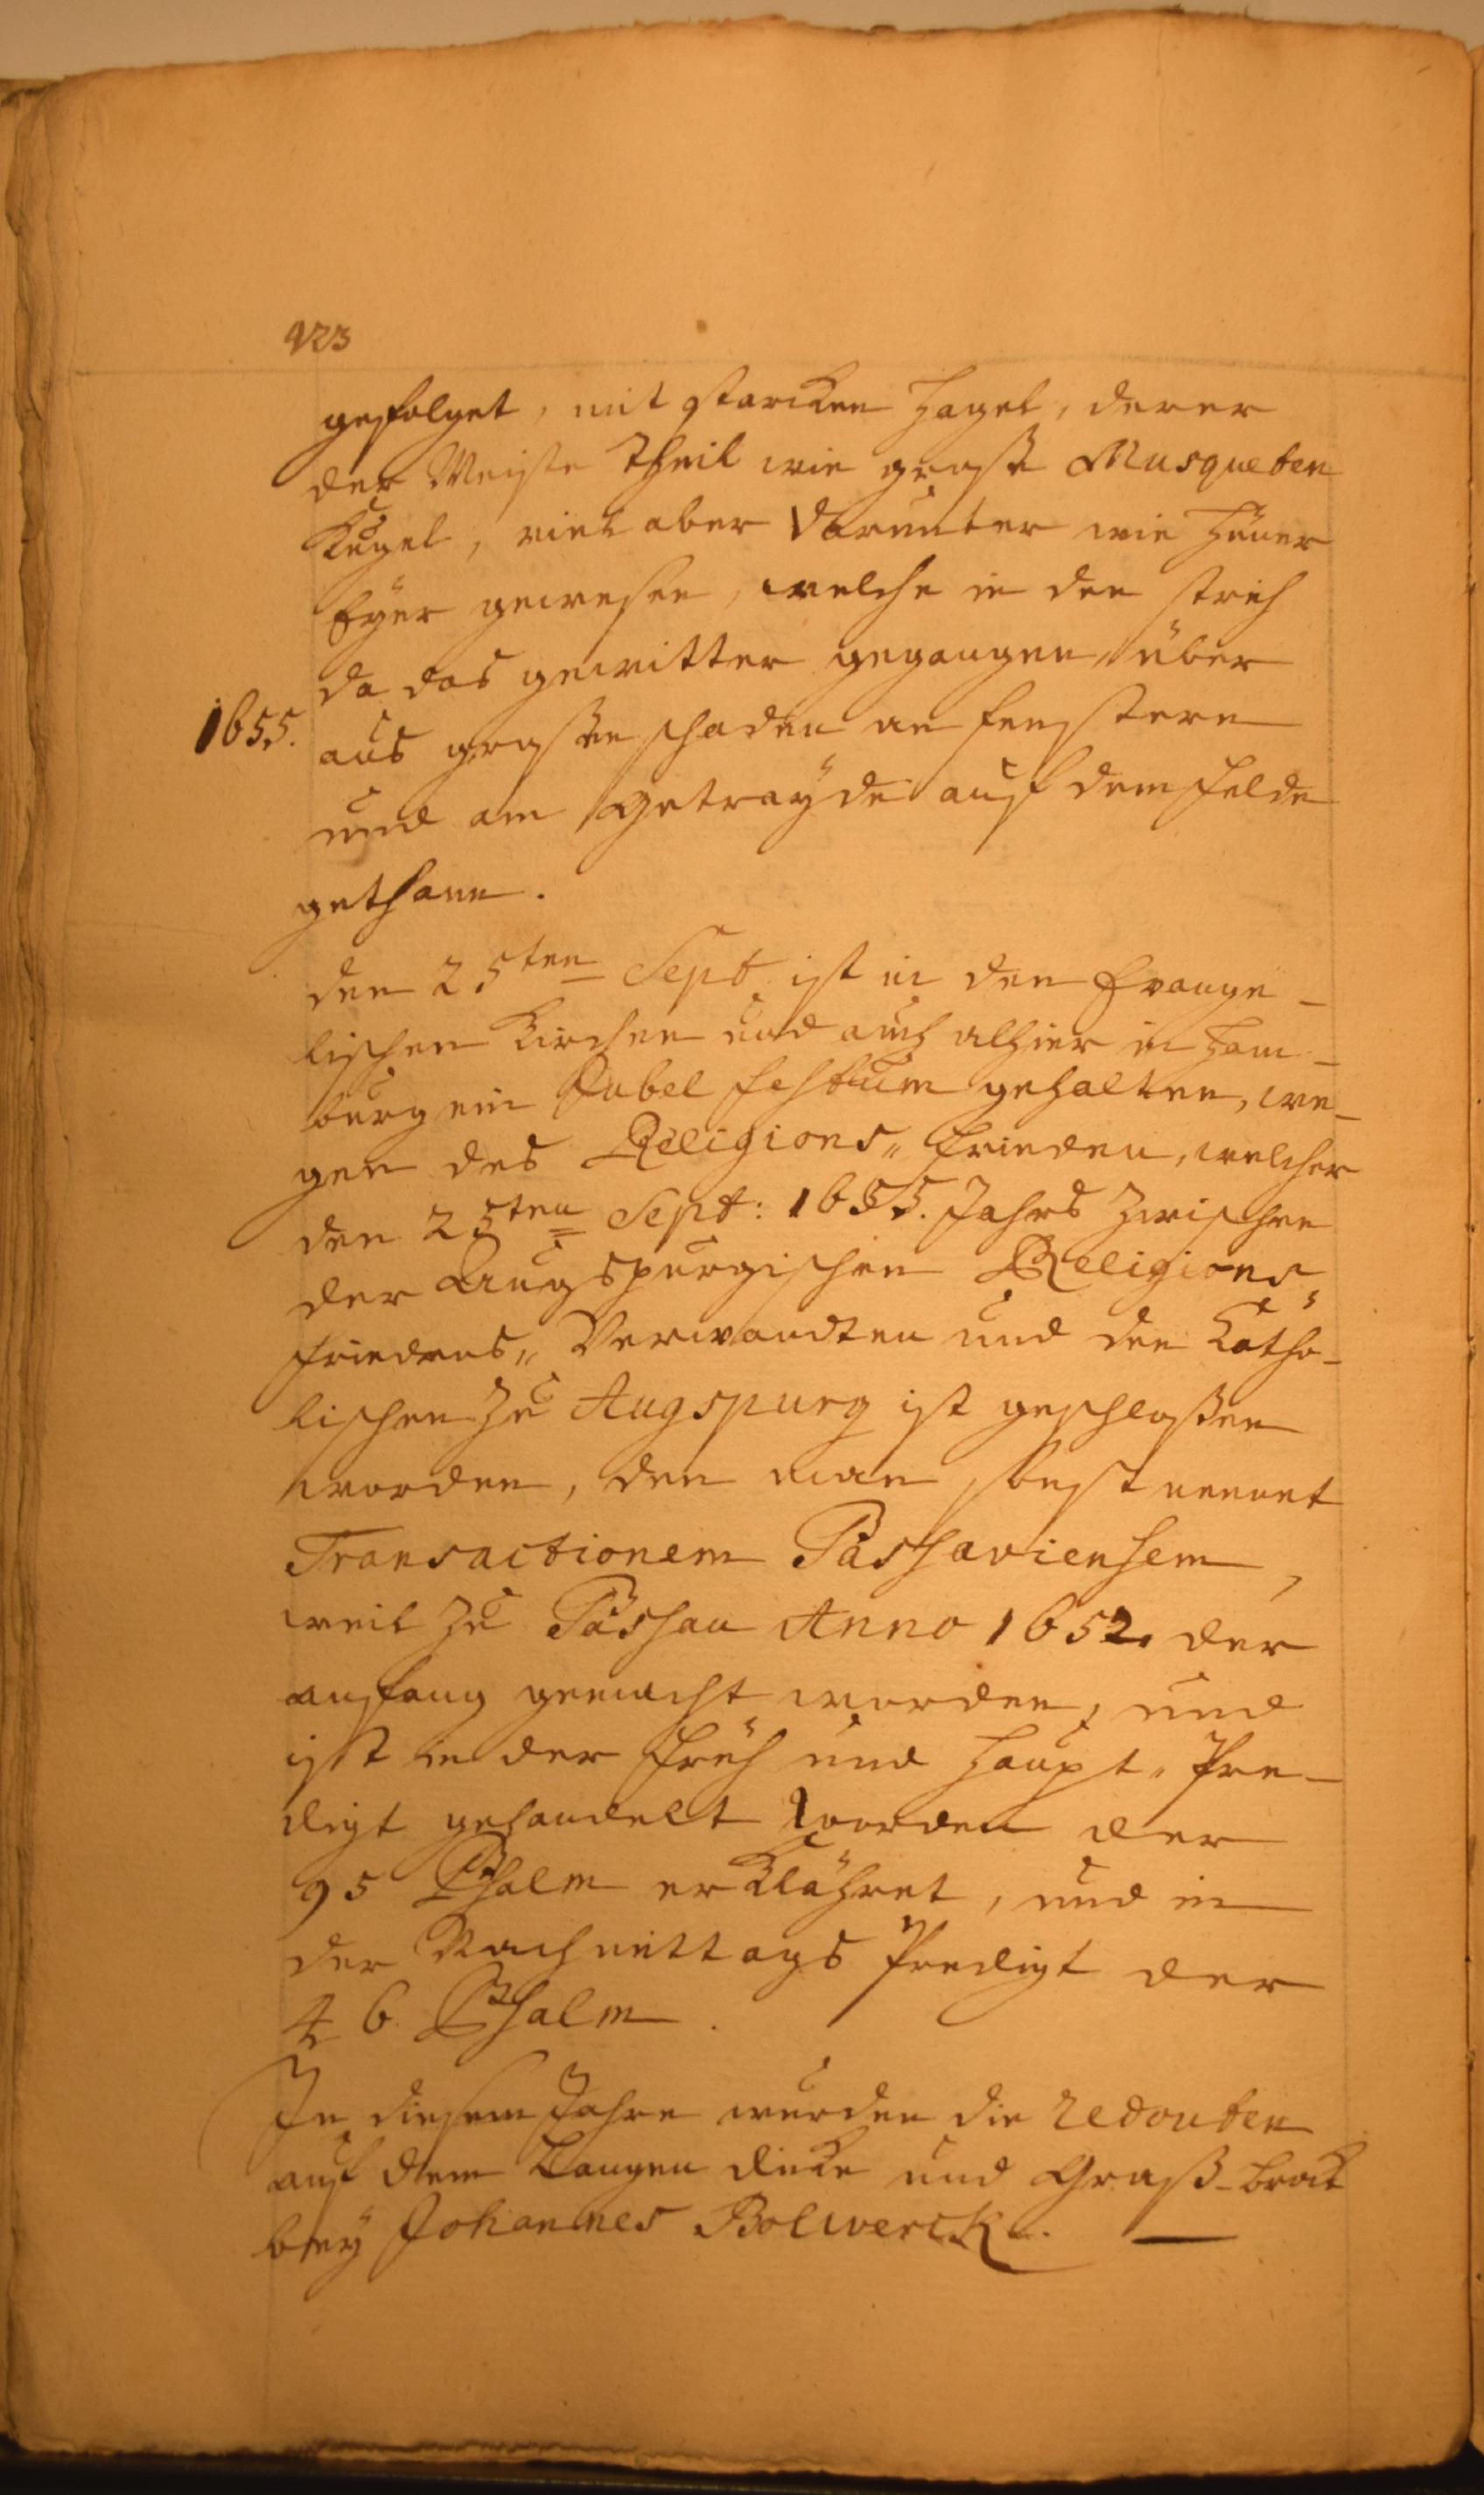 423
gefolget, mit starcken Hagel, derer
der Meiste Theil wie große Musqueten
Kugel, viel aber darunter wie Hüner
Eÿer gewesen, welche in den strich
da das gewitter gegangen, über
1655.
aus großen schaden an fenstern
und am getraÿde auf dem felde
gethann.
den 25ten Sept. ist in den Evange-
lischen Kirchen und auch alhier in Ham-
burg ein Jubel festum gehalten, we-
gen des Religions„ frieden, welcher
den 25ten Sept: 1655. Jahrs zwischen
der Augspurgischen Religions„
friedens„ Verwandten und den Catho-
lischen zu Augspurg ist geschloßen
worden, den man sonst nennet
Transactionem Passaviensem,
weil zu Passau Anno 1652. der
anfang gemacht worden, und
ist in der früh und Haupt„ Pre-
digt gehandelt worden der
95 Psalm erklähret, und in
der Nachmittags Predigt der
46. Psalm.
In diesem Jahre wurden die redouten
auf dem Langen dicke und Graß-brock
beÿ Johannes Bolwerck.